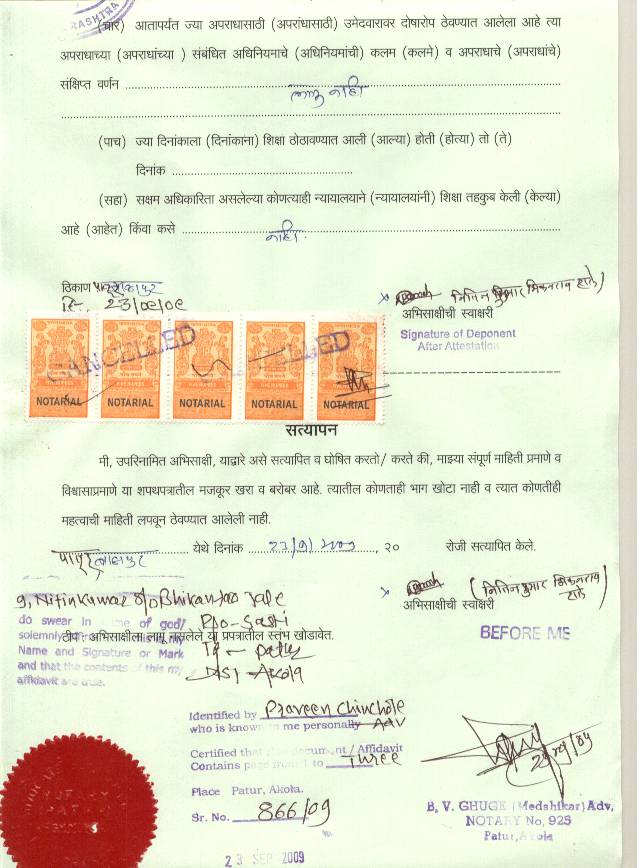 RASHTRA
(चार) आतापर्यत ज्या अपराधासाठी (अपरांधासाठी) उमेदवारावर दोषारोप ठेवण्यात आलेला आहे त्या
अपराधाच्या (अपराधांच्या ) संबंधित अधिनियमाचे (अधिनियमांची) कलम (कलमे) व अपराधाचे (अपराधांचे)
संक्षिप्त वर्णन ........ लागू नाही ........
(पाच) ज्या दिनांकाला (दिनांकाना) शिक्षा ठोठावण्यात आली (आल्या) होती (होत्या) तो (ते)
दिनांक ........
(सहा) सक्षम अधिकारिता असलेल्या कोणत्याही न्यायालयाने (न्यायालयांनी) शिक्षा तहकुब केली (केल्या)
आहे (आहेत) किंवा कसे ........ नाही. ........
ठिकाण
दि. 23/09/09
नितिन कुमार भिकनराव टाले)
अभिसाक्षीची स्वाक्षरी
Signature of Deponent
After Attestation
CANCELLED CANCELLED
NOTARIAL NOTARIAL NOTARIAL NOTARIAL NOTARIAL
सत्यापन
मी, उपरिनामित अभिसाक्षी, याद्वारे असे सत्यापित व घोषित करतो/ करते की, माझ्या संपूर्ण माहिती प्रमाणे व
विश्वासाप्रमाणे या शपथपत्रातील मजकूर खरा व बरोबर आहे. त्यातील कोणताही भाग खोटा नाही व त्यात कोणतीही
महत्वाची माहिती लपवून ठेवण्यात आलेली नाही.
........ येथे दिनांक ........, २० रोजी सत्यापित केले.
(नितिन कुमार भिकनराव टाले)
अभिसाक्षीची स्वाक्षरी
BEFORE ME
I, Nitinkumar s/o Bhikanrao Tale
do swear in name of god/ R/o-Sasti
solemnly
टीप : अभिसाक्षीला लागू नसलेले या प्रपत्रातील स्तंभ खोडावेत.
Name and Signature or Mark Tq - Patur
and that the contents of this my Dist - Akola
affidavit are true.
Identified by Praveen Chinchole
who is known to me personally Adv
Certified that document / Affidavit
Contains page from 1 to Three
Place Patur, Akola.
Sr. No. 866/09
23 SEP 2009
B. V. GHUGE (Medshikar) Adv,
NOTARY No, 925
Patur, Akola